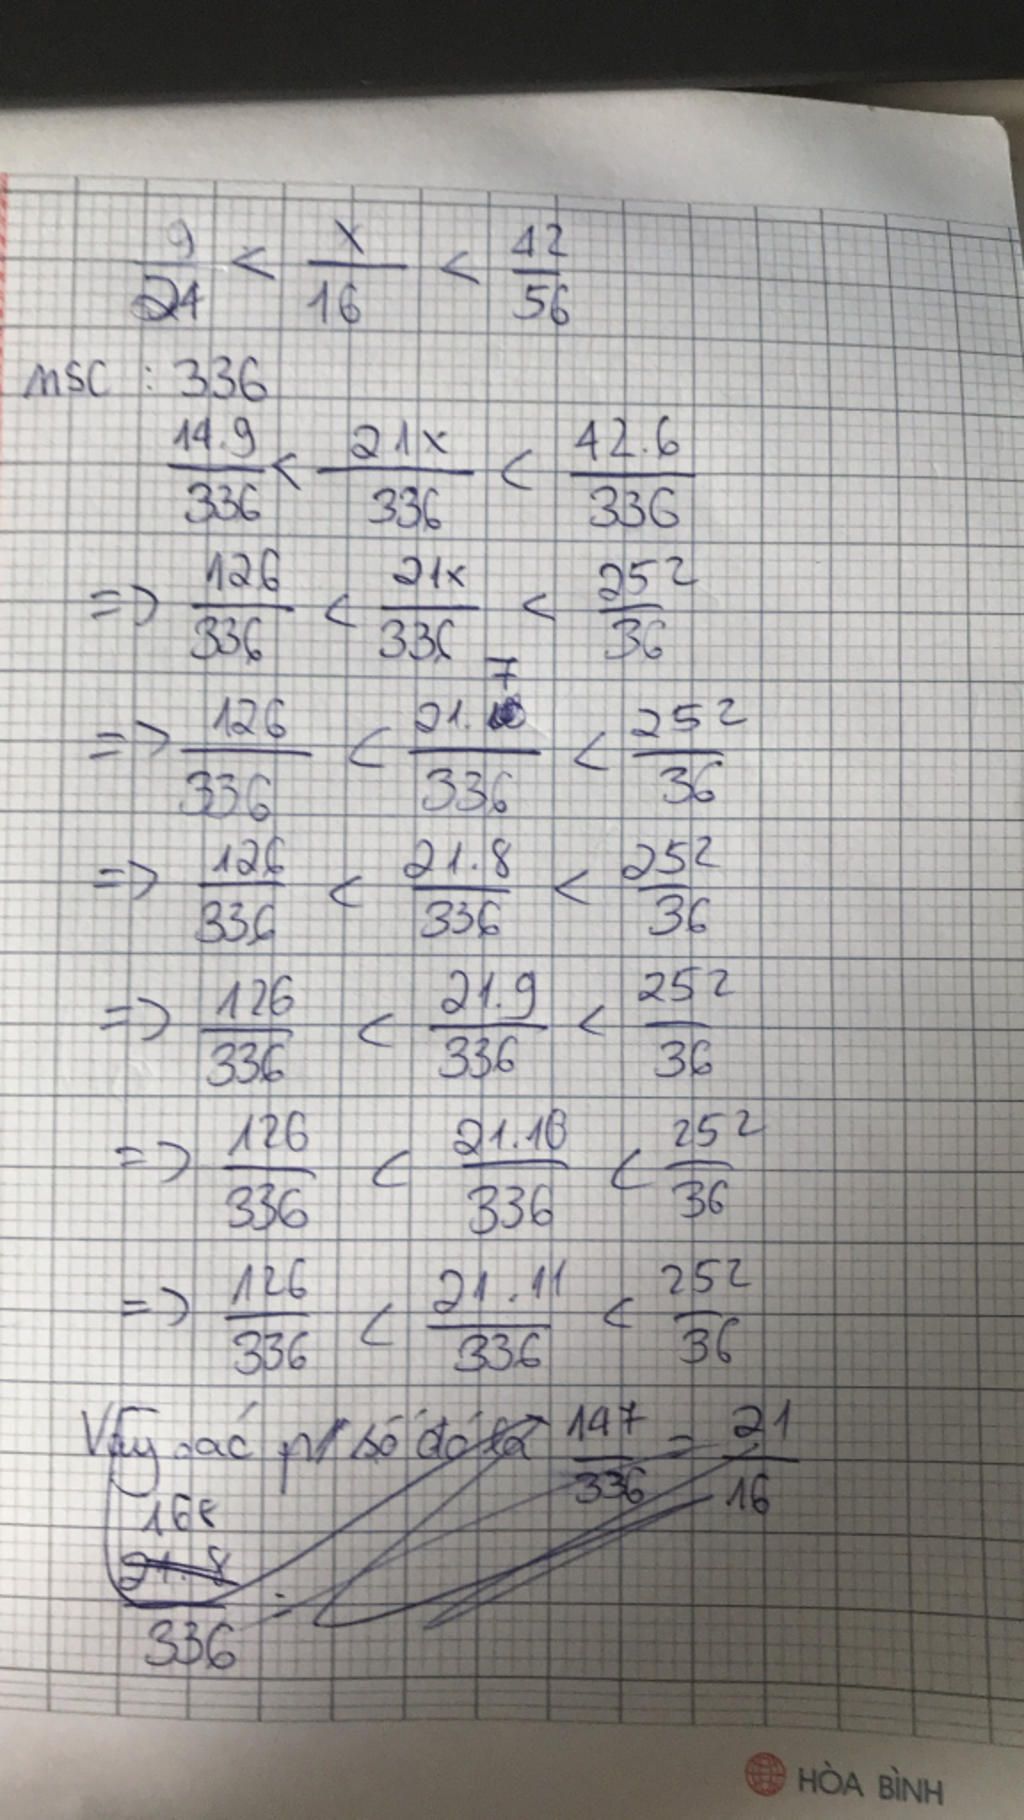 9/24 < x/16 < 42/56
MSC : 336
14.9/336 < 21x/336 < 42.6/336
=> 126/336 < 21x/336 < 252/36
=> 126/336 < 21.7/336 < 252/36
=> 126/336 < 21.8/336 < 252/36
=> 126/336 < 21.9/336 < 252/36
=> 126/336 < 21.10/336 < 252/36
=> 126/336 < 21.11/336 < 252/36
Vậy các số đó là 147/336 = 21/16
168
21.8
336 =
HÒA BÌNH